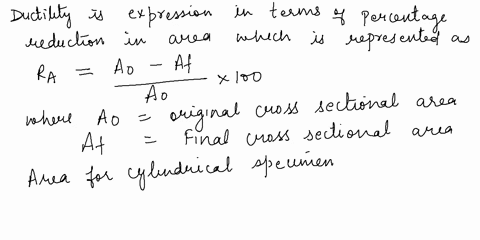 Ductility is expression in terms of percentage
reduction in area which is represented as
RA = Ao - Af / Ao × 100
where Ao = original cross sectional area
Af = Final cross sectional area
Area for cylindrical specimen